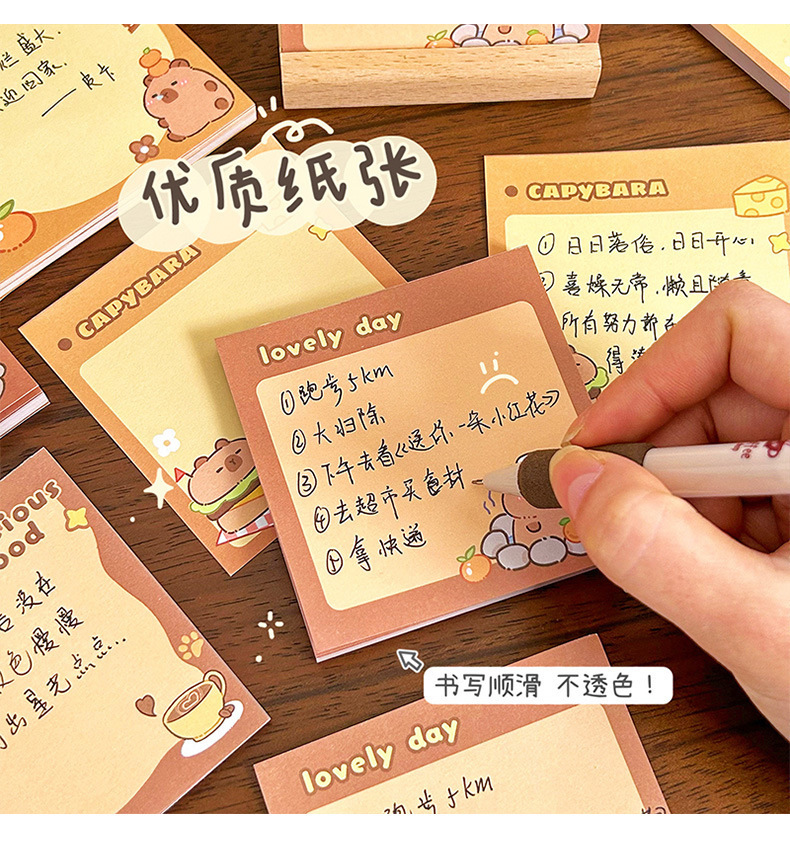 盛大.
回家.
——皮卡
优质纸张
CAPYBARA
CAPYBARA
① 日日落俗，日日开心
② 喜燥无常，懒且随意
所有努力都在
lovely day
①跑步5km
②大扫除
③下午去看《送你一朵小红花》
④去超市买食材
⑤拿快递
ood
没在
色慢慢
出星光点点...
书写顺滑 不透色！
lovely day
跑步5km